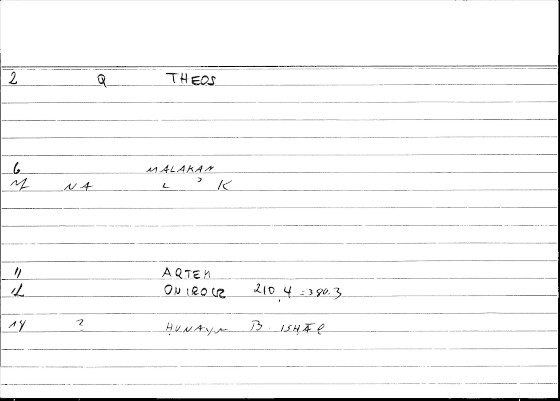 2 Q THEOS
6 MALAKAN
M NA L ʾ K
11 ARTEM
12 ONIROCR 210,4 = 380.3
14 ? ḤUNAYN B. ISḤĀQ